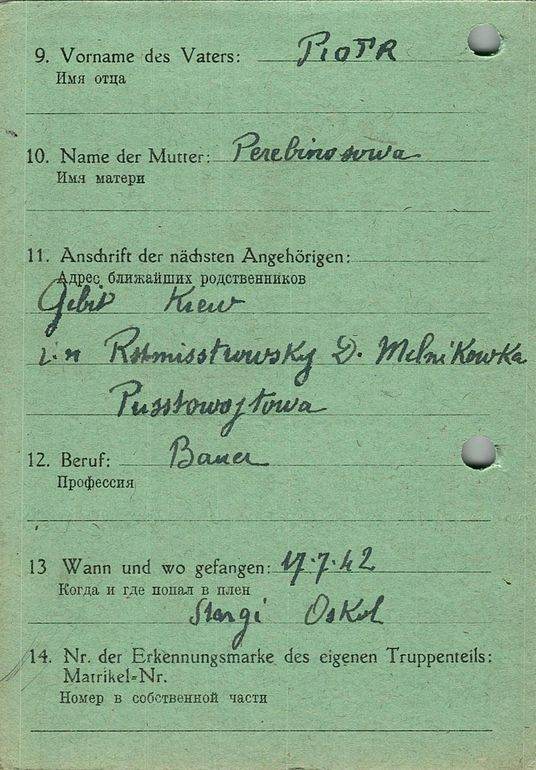 9. Vorname des Vaters: Piotr
Имя отца
10. Name der Mutter: Perebinosowa
Имя матери
11. Anschrift der nächsten Angehörigen:
Адрес ближайших родственников
Gebit Kiew
Rotmisstrowsky D. Melnikowka
Pusstowojtowa
12. Beruf: Bauer
Профессия
13 Wann und wo gefangen: 17.7.42
Когда и где попал в плен
Stargi Oskol
14. Nr. der Erkennungsmarke des eigenen Truppenteils:
Matrikel-Nr.
Номер в собственной части